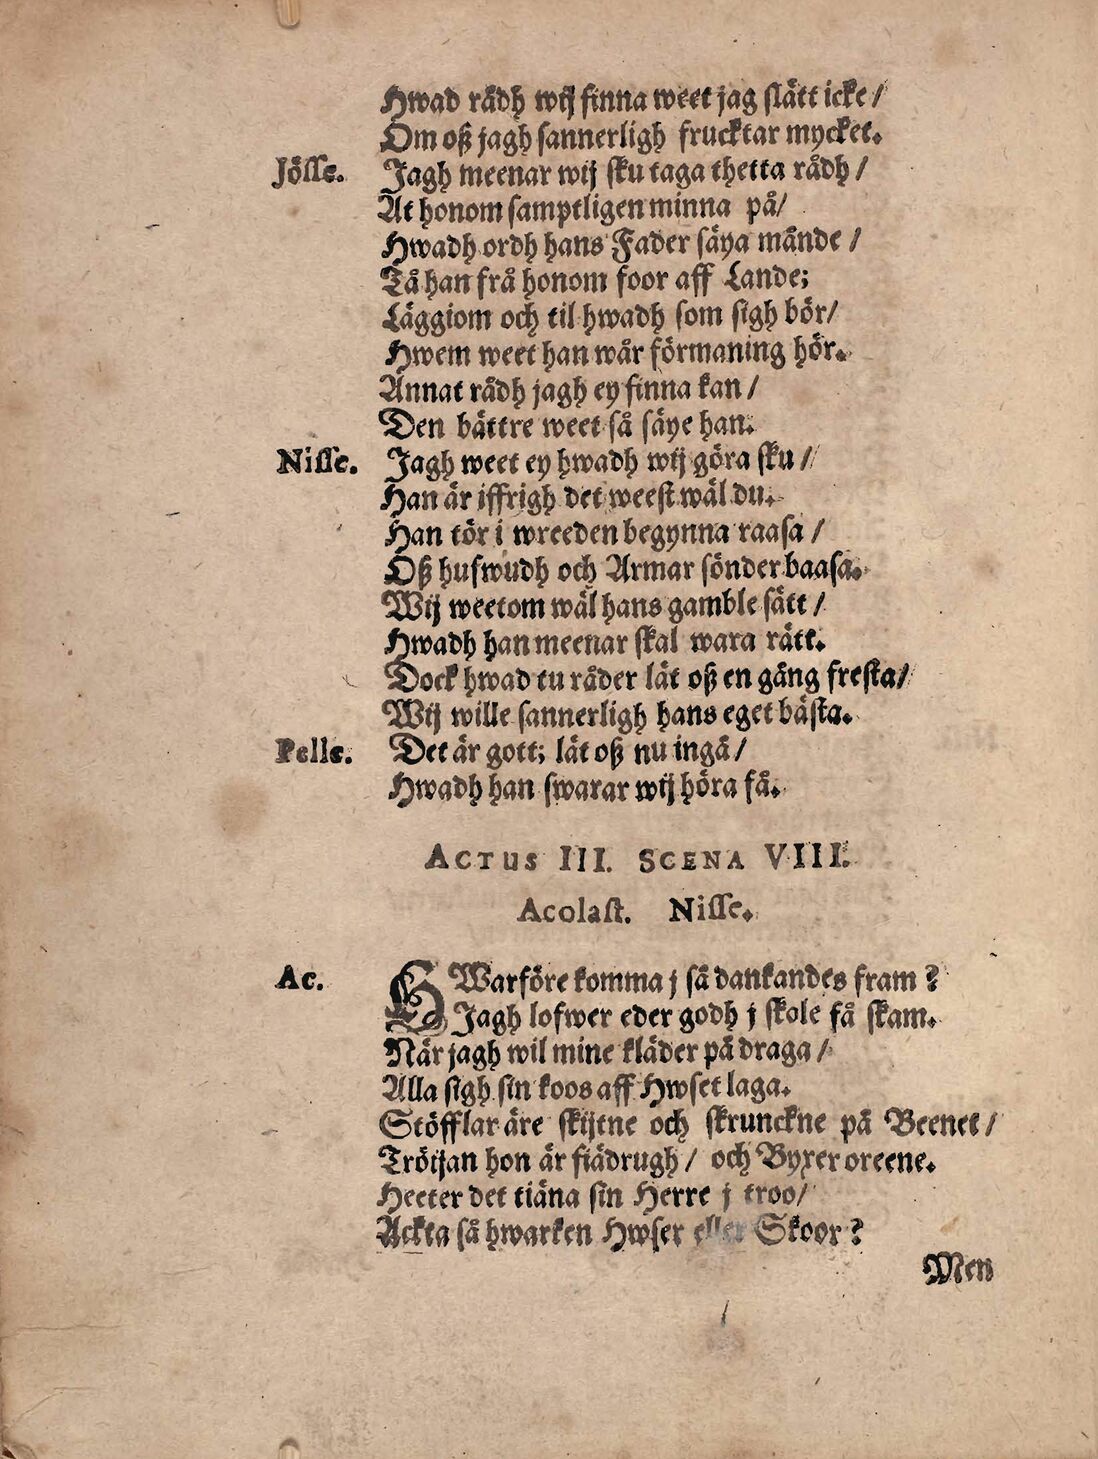 Hwad rådh wij finna weet jag slätt icke /
Om oß jagh sannerligh frucktar mycket.
Jösse. Jagh meenar wij sku taga thetta rådh /
At honom samptligen minna på /
Hwadh ordh hans Fader säya månde /
Tå han frå honom foor aff Lande;
Läggiom och til hwadh som sigh bör /
Hwem weet han wår förmaning hör.
Annat rådh jagh ey finna kan /
Den bättre weet så säye han.
Nisse. Jagh weet ey hwadh wij göra sku /
Han är iffrigh det weest wäl du.
Han tör i wreeden begynna raasa /
Oß hufwudh och Armar sönder baasa.
Wij weetom wäl hans gamble sätt /
Hwadh han meenar skal wara rätt.
Dock hwad tu råder lät oß en gång fresta /
Wij wille sannerligh hans eget bästa.
Pelle. Det är gott; lät oß nu ingå /
Hwadh han swarar wij höra få.
ACTUS III. SCENA VIII.
Acolast. Nisse.
Ac. HWarföre komma j så dankandes fram ?
Jagh lofwer eder godh j skole få skam.
När jagh wil mine kläder på draga /
Alla sigh sin koos aff Hwset laga.
Stöfflar äre skijtne och skrunckne på Beenet /
Tröijan hon är fiädrugh / och Byxer oreene.
Heeter det tiäna sin Herre j troo /
Ackta så hwarken Hwser eller Skoor ?
Men